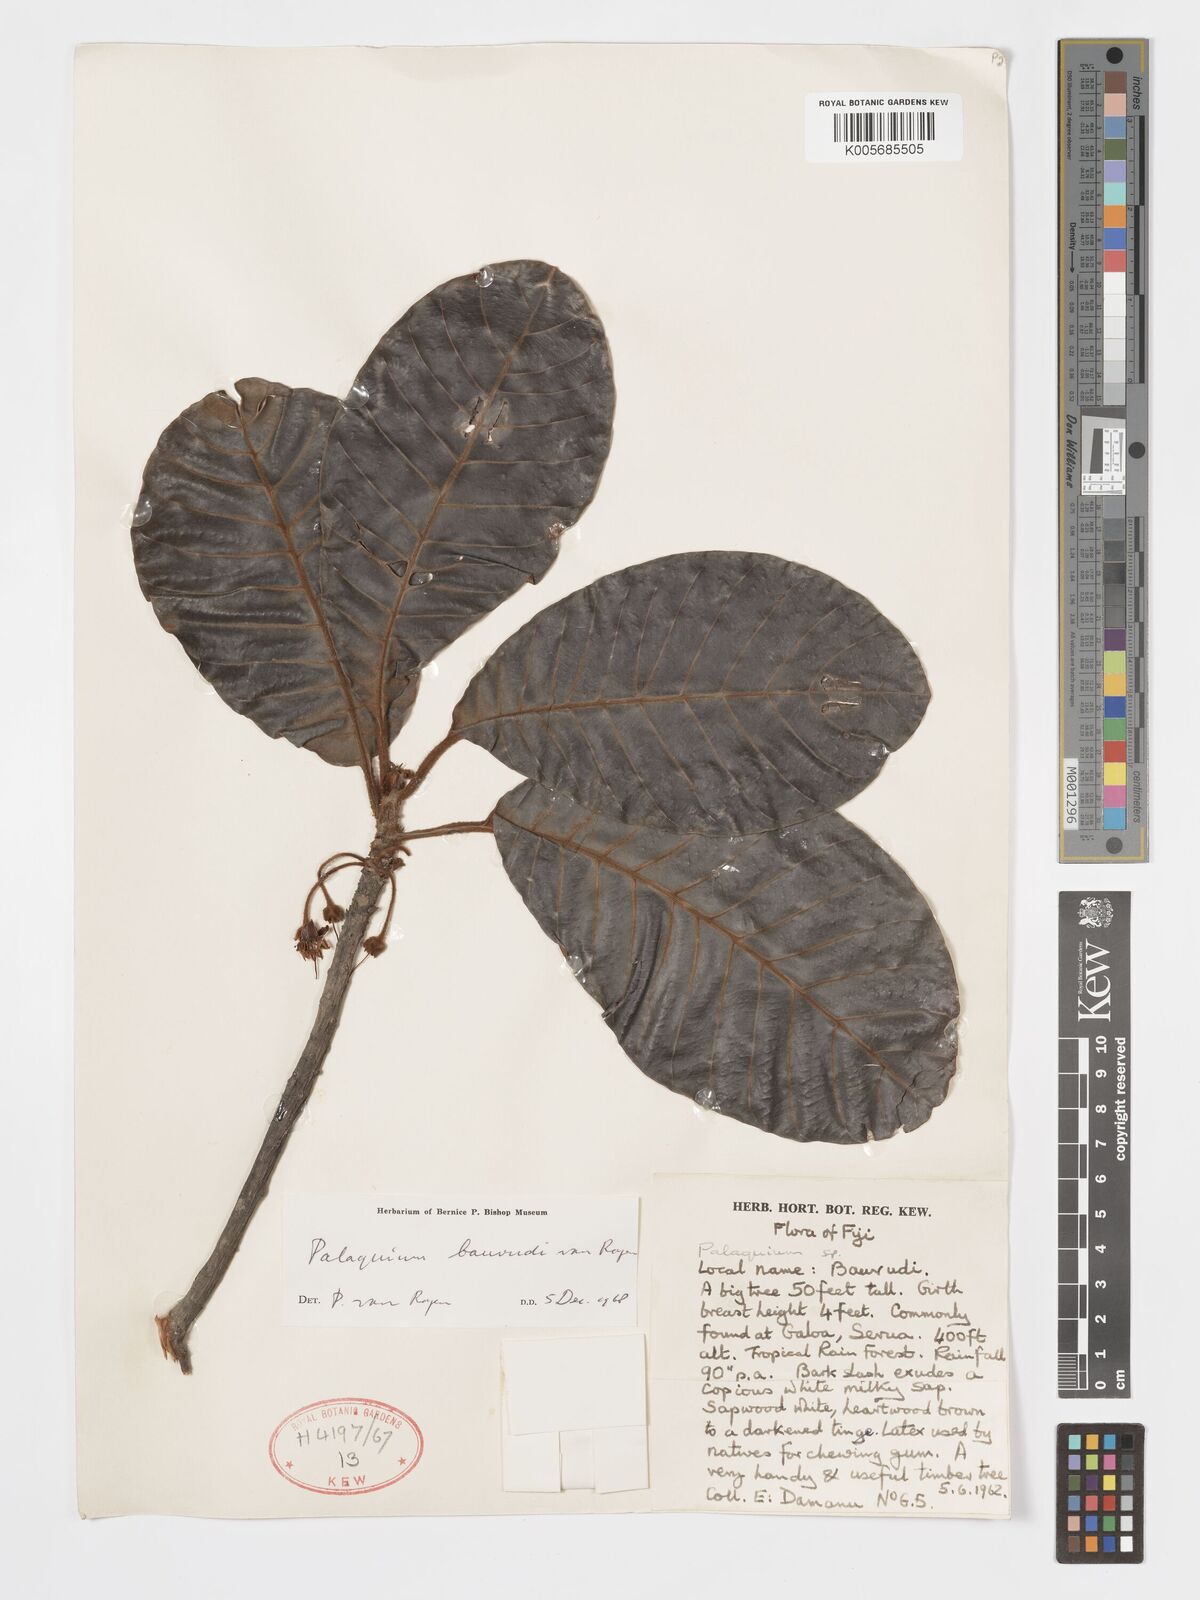 P2
ROYAL BOTANIC GARDENS KEW
K005685505
Herbarium of Bernice P. Bishop Museum
Palaquium bauvudi van Royen
DET. P. van Royen D.D. 5 Dec. 1968
HERB. HORT. BOT. REG. KEW.
Flora of Fiji
Palaquium sp.
Local name: Bauvudi.
A big tree 50 feet tall. Girth
breast height 4 feet. Commonly
found at Galoa, Serua. 400ft
alt. Tropical Rain Forest. Rainfall
90" p.a. Bark slash exudes a
copious white milky sap.
Sapwood white, heartwood brown
to a darkened tinge. Latex used by
natives for chewing gum. A
very handy & useful timber tree
5.6.1962.
Coll. E: Damanu No G.5.
ROYAL BOTANIC GARDENS
H4197/67
13
KEW
inches
Density
Don Williams
M001296
centimeters
Royal Botanic Gardens
Kew
0 1 2 3 4 5 6 7 8 9 10
copyright reserved